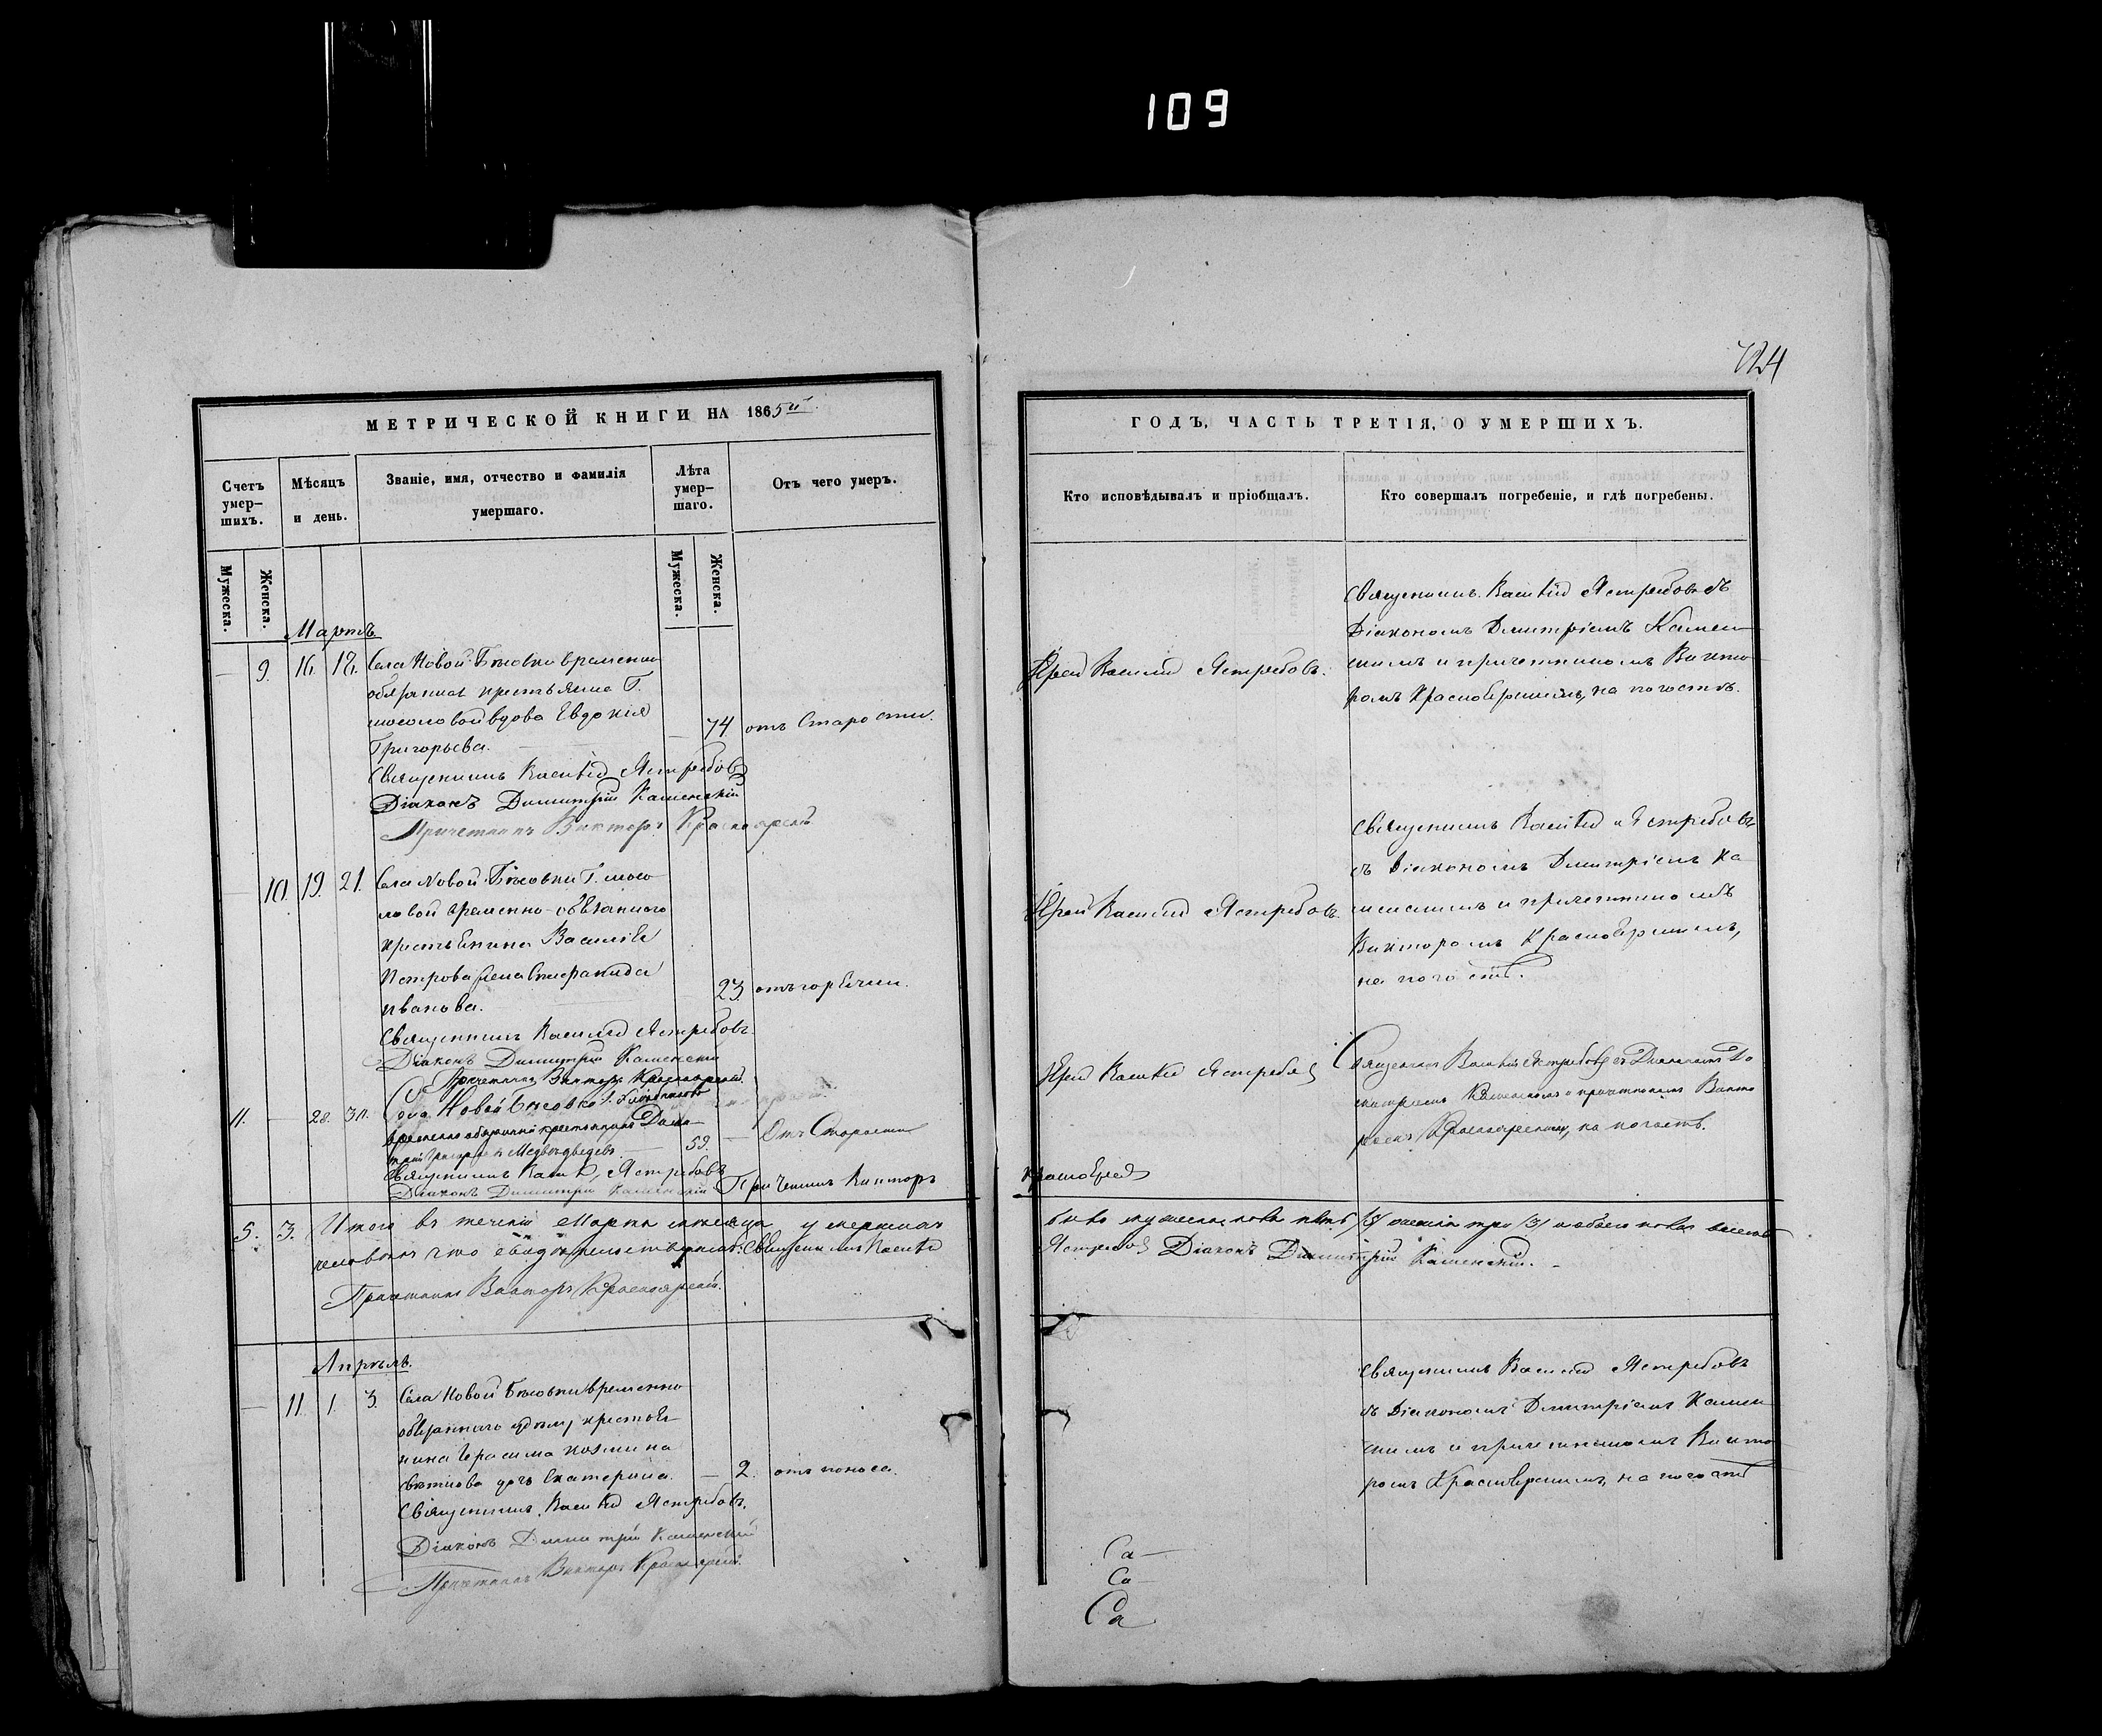 109
724
МЕТРИЧЕСКОЙ КНИГИ НА 1865й
Счетъ умер-
шихъ.
Мѣсяцъ
и день.
Званіе, имя, отчество и фамилія
умершаго.
Лѣта
умер-
шаго.
Отъ чего умеръ.
Мужеска.
Женска.
Мужеска.
Женска.
Мартъ
— 9. 16. 18. Села Новой временно
вдова Евдокія
— 74 отъ Старости.
Григорьева.
Священникъ Василій Ястребовъ
Діаконъ Димитрій Каменскій
Причетникъ Викторъ Красноярскій
— 10. 19. 21. Села Новой
ловой временно-обязаннаго
крестьянина Василія
Петрова жена
23. отъ горячки.
Иванова.
Священникъ Василій Ястребовъ.
Діаконъ Димитрій Каменскій
Причетникъ Викторъ Красноярскій.
11. — 28. 31. Села Новой
временно обязанный крестьянинъ Дими-
трій 59. — Отъ Старости
Священникъ Василій Ястребовъ
Діаконъ Димитрій Каменскій Причетникъ Викторъ
5. 3. Итого въ теченіи Марта мѣсяца умершихъ
человѣкъ что свидѣтельствуемъ: Священникъ Василій
Причетникъ Викторъ Красноярскій.
Апрѣль.
— 11. 1. 3. Села Новой временно
обязаннаго крестья-
нина Герасима
дочь Екатерина. — 2. отъ поноса.
Священникъ Василій Ястребовъ.
Діаконъ Димитрій Каменскій
Причетникъ Викторъ Красноярскій.
ГОДЪ, ЧАСТЬ ТРЕТІЯ, О УМЕРШИХЪ.
Кто исповѣдывалъ и пріобщалъ.
Кто совершалъ погребеніе, и гдѣ погребены.
Священникъ Василій Ястребовъ съ
Діакономъ Димитріемъ Камен-
Іерей Василій Ястребовъ.
скимъ и причетникомъ Викто-
ромъ Красноярскимъ, на погостѣ.
Священникъ Василій Ястребовъ
съ Діакономъ Димитріемъ Ка-
Іерей Василій Ястребовъ.
менскимъ и причетникомъ
Викторомъ Красноярскимъ,
на погостѣ.
Іерей Василій Ястребовъ
Священникъ Василій Ястребовъ съ Діакономъ Ди-
митріемъ Каменскимъ и причетникомъ Викто-
ромъ Красноярскимъ, на погостѣ.
Красноярскій
было мужеска пола пять /5/ женска три /3/ и обоего пола восемь
Ястребовъ Діаконъ Димитрій Каменскій.
Священникъ Василій Ястребовъ
съ Діакономъ Димитріемъ Камен-
скимъ и причетникомъ Викто-
ромъ Красноярскимъ, на погостѣ
Са—
Са—
Са